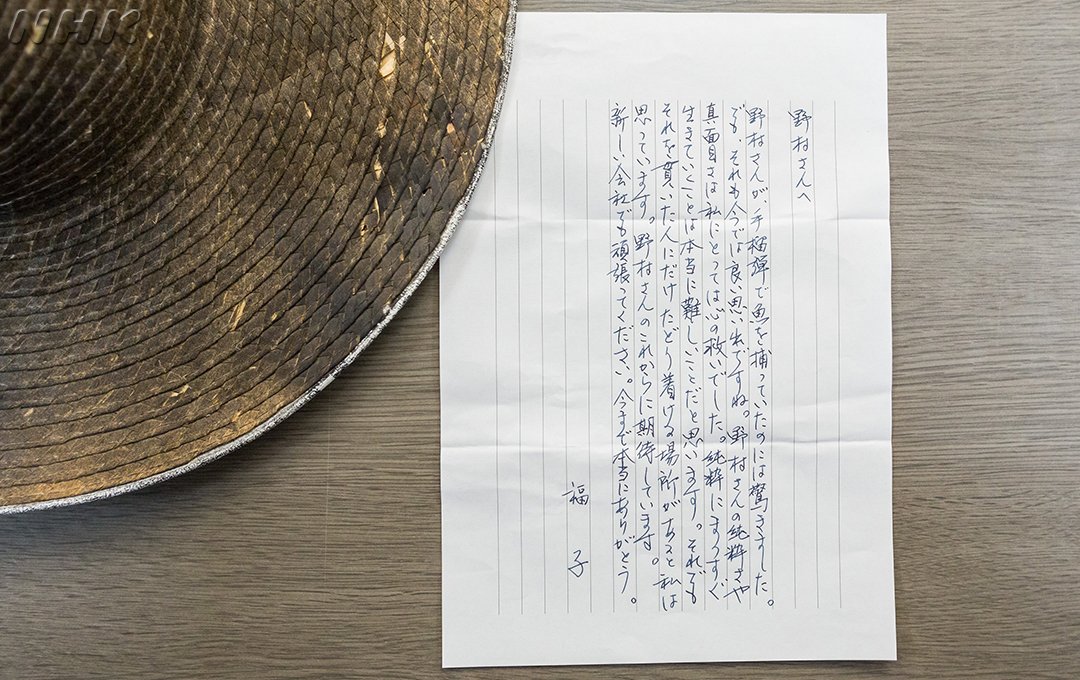 NHK
野村さんへ
野村さんが、手榴弾で魚を捕っていたのには驚きました。
でも、それも今では良い思い出ですね。野村さんの純粋さや
真面目さは私にとっては心の救いでした。純粋にまっすぐ
生きていくことは本当に難しいことだと思います。それでも
それを貫いた人にだけたどり着ける場所があると私は
思っています。野村さんのこれからに期待しています。
新しい会社でも頑張ってください。今まで本当にありがとう。
福子